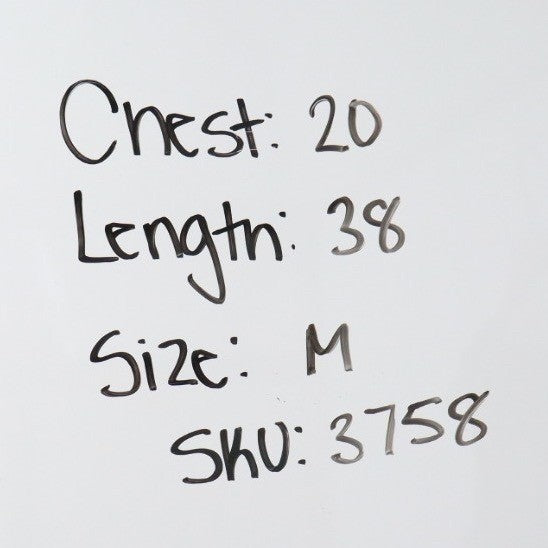 Chest: 20
Length: 38
Size: M
SKU: 3758